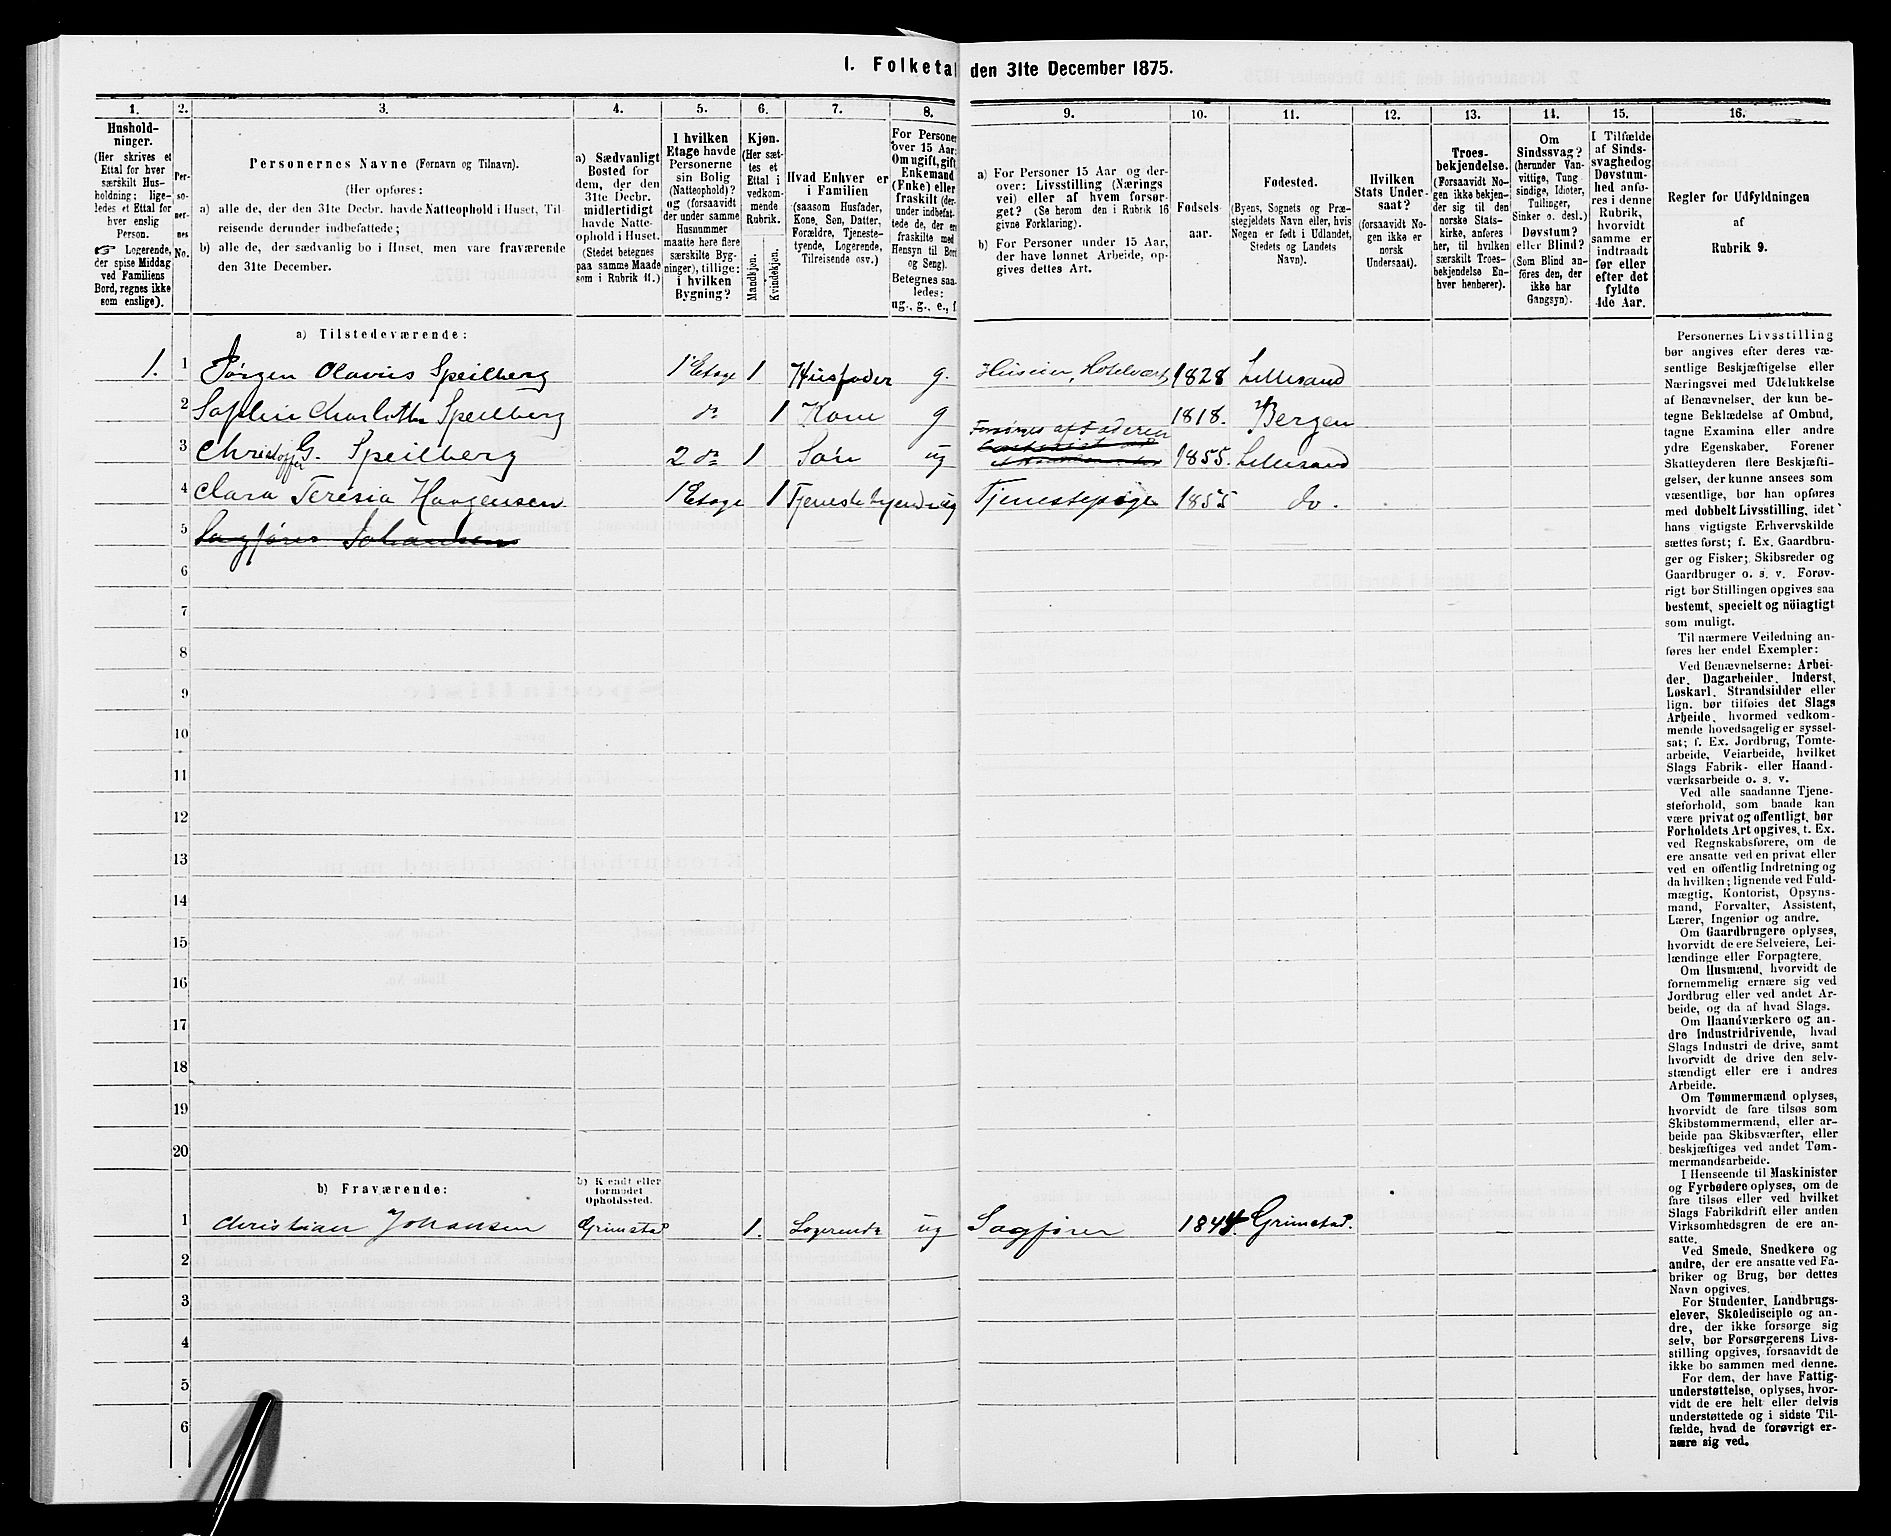 I. Folketal den 31te December 1875.
1.
Hushold-
ninger.
(Her skrives et
Ettal for hver
særskilt Hus-
holdning; lige-
ledes et Ettal for
hver enslig
Person.
☞ Logerende,
der spise Middag
ved Familiens
Bord, regnes ikke
som enslige).
2.
Per-
so-
ner-
nes
No.
3.
Personernes Navne (Fornavn og Tilnavn).
(Her opføres:
a) alle de, der den 31te Decbr. havde Natteophold i Huset, Til-
reisende derunder indbefattede;
b) alle de, der sædvanlig bo i Huset, men vare fraværende
den 31te December.
4.
a) Sædvanligt
Bosted for
dem, der den
31te Decbr.
midlertidigt
havde Natte-
ophold i Huset.
(Stedet betegnes
paa samme Maade
som i Rubrik 11.)
5.
I hvilken
Etage havde
Personerne
sin Bolig
(Natteophold)?
og (forsaavidt
der under samme
Husnummer
maatte høre flere
særskilte Byg-
ninger), tillige:
i hvilken
Bygning?
6.
Kjøn.
(Her sæt-
tes et
Ettal i
vedkom-
mende
Rubrik.
Mandkjøn.
Kvindekjøn.
7.
Hvad Enhver er
i Familien
(saasom Husfader,
Kone, Søn, Datter,
Forældre, Tjeneste-
tyende, Logerende,
Tilreisende osv.)
8.
For Personer
over 15 Aar:
Om ugift, gift
Enkemand
(Enke) eller
fraskilt (der-
under indbefat-
tede de, der er
fraskilte med
Hensyn til Bord
og Seng).
Betegnes saa-
ledes:
ug., g., e., f.
9.
a) For Personer 15 Aar og der-
over: Livsstilling (Nærings
vei) eller af hvem forsør-
get? (Se herom den i Rubrik 16
givne Forklaring).
b) For Personer under 15 Aar,
der have lønnet Arbeide, op-
gives dettes Art.
10.
Fødsels-
aar.
11.
Fødested.
(Byens, Sognets og Præ-
stegjeldets Navn eller, hvis
Nogen er født i Udlandet,
Stedets og Landets
Navn).
12.
Hvilken
Stats Under-
saat?
(forsaavidt No-
gen ikke er
norsk
Undersaat).
13.
Troes-
bekjendelse.
(Forsaavidt No-
gen ikke bekjen-
der sig til den
norske Stats-
kirke, anføres
her, til hvilken
særskilt Troes-
bekjendelse En-
hver henhører).
14.
Om
Sindssvag?
(herunder Van-
vittige, Tung-
sindige, Idioter,
Tullinger,
Sinker o. desl.)
Døvstum?
eller Blind?
(Som Blind an-
føres den, der
ikke har
Gangsyn).
15.
I Tilfælde
af Sinds-
svaghed og
Døvstum-
hed anfø-
res i denne
Rubrik,
hvorvidt
samme er
indtraadt
før eller
efter det
fyldte
4de Aar.
16.
Regler for Udfyldningen
af
Rubrik 9.
a) Tilstedeværende:
1. 1 Jørgen Olavus Speilberg 1 Etage 1 Husfader g. Huseier, Hotelvært 1828 Lillesand
2 Sophie Charlotte Speilberg do 1 Kone g 1818. Bergen
3 Christoffer G. Speilberg 2 do 1 Søn ug Forsørges af Faderen 1855. Lillesand
4 Clara Teresia Haagensen 1 Etage 1 Tjenestetyende ug Tjenestepige 1855 do.
5 Sagfører Johansen
6
7
8
9
10
11
12
13
14
15
16
17
18
19
20
b) Fraværende:
b) Kendt eller
formodet
Opholdssted.
1 Christian Johansen Grimstad 1. Logerende ug Sagfører 1844. Grimstad.
2
3
4
5
6
Personernes Livsstilling
bør angives efter deres væ-
sentlige Beskjæftigelse eller
Næringsvei med Udelukkelse
af Benævnelser, der kun be-
tegne Beklædelse af Ombud,
tagne Examina eller andre
ydre Egenskaber. Forener
Skatteyderen flere Beskjæfti-
gelser, der kunne ansees som
væsentlige, bør han opføres
med dobbelt Livsstilling, idet
hans vigtigste Erhvervskilde
sættes først; f. Ex. Gaardbru-
ger og Fisker; Skibsreder og
Gaardbruger o. s. v. Forøv-
rigt bør Stillingen opgives saa
bestemt, specielt og nöiagtigt
som muligt.
Til nærmere Veiledning an-
føres her endel Exempler:
Ved Benævnelserne: Arbei-
der, Dagarbeider, Inderst,
Løskarl, Strandsidder eller
lign. bør tilføies det Slags
Arbeide, hvormed vedkom-
mende hovedsagelig er syssel-
sat; f. Ex. Jordbrug, Tomte-
arbeide, Veiarbeide, hvilket
Slags Fabrik- eller Haand-
værksarbeide o. s. v.
Ved alle saadanne Tjene-
steforhold, som baade kan
være privat og offentligt, bør
Forholdets Art opgives, t. Ex.
ved Regnskabsførere, om de
ere ansatte ved en privat eller
ved en offentlig Indretning og
da hvilken; lignende ved Fuld-
mægtig, Kontorist, Opsyns-
mand, Forvalter, Assistent,
Lærer, Ingeniør og andre.
Om Gaardbrugere oplyses,
hvorvidt de ere Selveiere, Lei-
lændinge eller Forpagtere.
Om Husmænd, hvorvidt de
fornemmelig ernære sig ved
Jordbrug eller ved andet Ar-
beide, og da af hvad Slags.
Om Haandværkere og an-
dre Industridrivende, hvad
Slags Industri de drive, samt
hvorvidt de drive den selv-
stændigt eller ere i andres
Arbeide.
Om Tømmermænd oplyses,
hvorvidt de fare tilsøs som
Skibstømmermænd, eller ar-
beide paa Skibsværfter, eller
beskjæftiges ved andet Tøm-
mermandsarbeide.
I Henseende til Maskinister
og Fyrbødere oplyses, om de
fare tilsøs eller ved hvilket
Slags Fabrikdrift eller anden
Virksomhedsgren de ere an-
satte.
Ved Smede, Snedkere og
andre, der ere ansatte ved Fa-
briker og Brug, bør dettes
Navn opgives.
For Studenter, Landbrugs-
elever, Skoledisciple og an-
dre, der ikke forsørge sig
selv, bør Forsørgerens Livs-
stilling opgives, forsaavidt de
ikke bo sammen med denne.
For dem, der have Fattig-
understøttelse, oplyses, hvor-
vidt de ere helt eller delvis
understøttede og i sidste Til-
fælde, hvad de forøvrigt er-
nære sig ved.